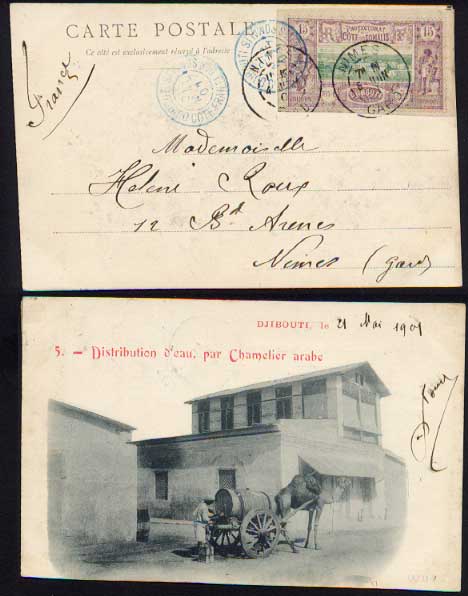 CARTE POSTALE
Ce côté est exclusivement réservé à l'adresse
France
15
15
PROTECTORAT
CÔTE des SOMALIS
DJIBOUTI
NIMES
GARD
Mademoiselle
Helene Roux
12 Bd Arenes
Nimes (Gard)
DJIBOUTI, le 21 Mai 1901
5. — Distribution d'eau, par Chamelier arabe